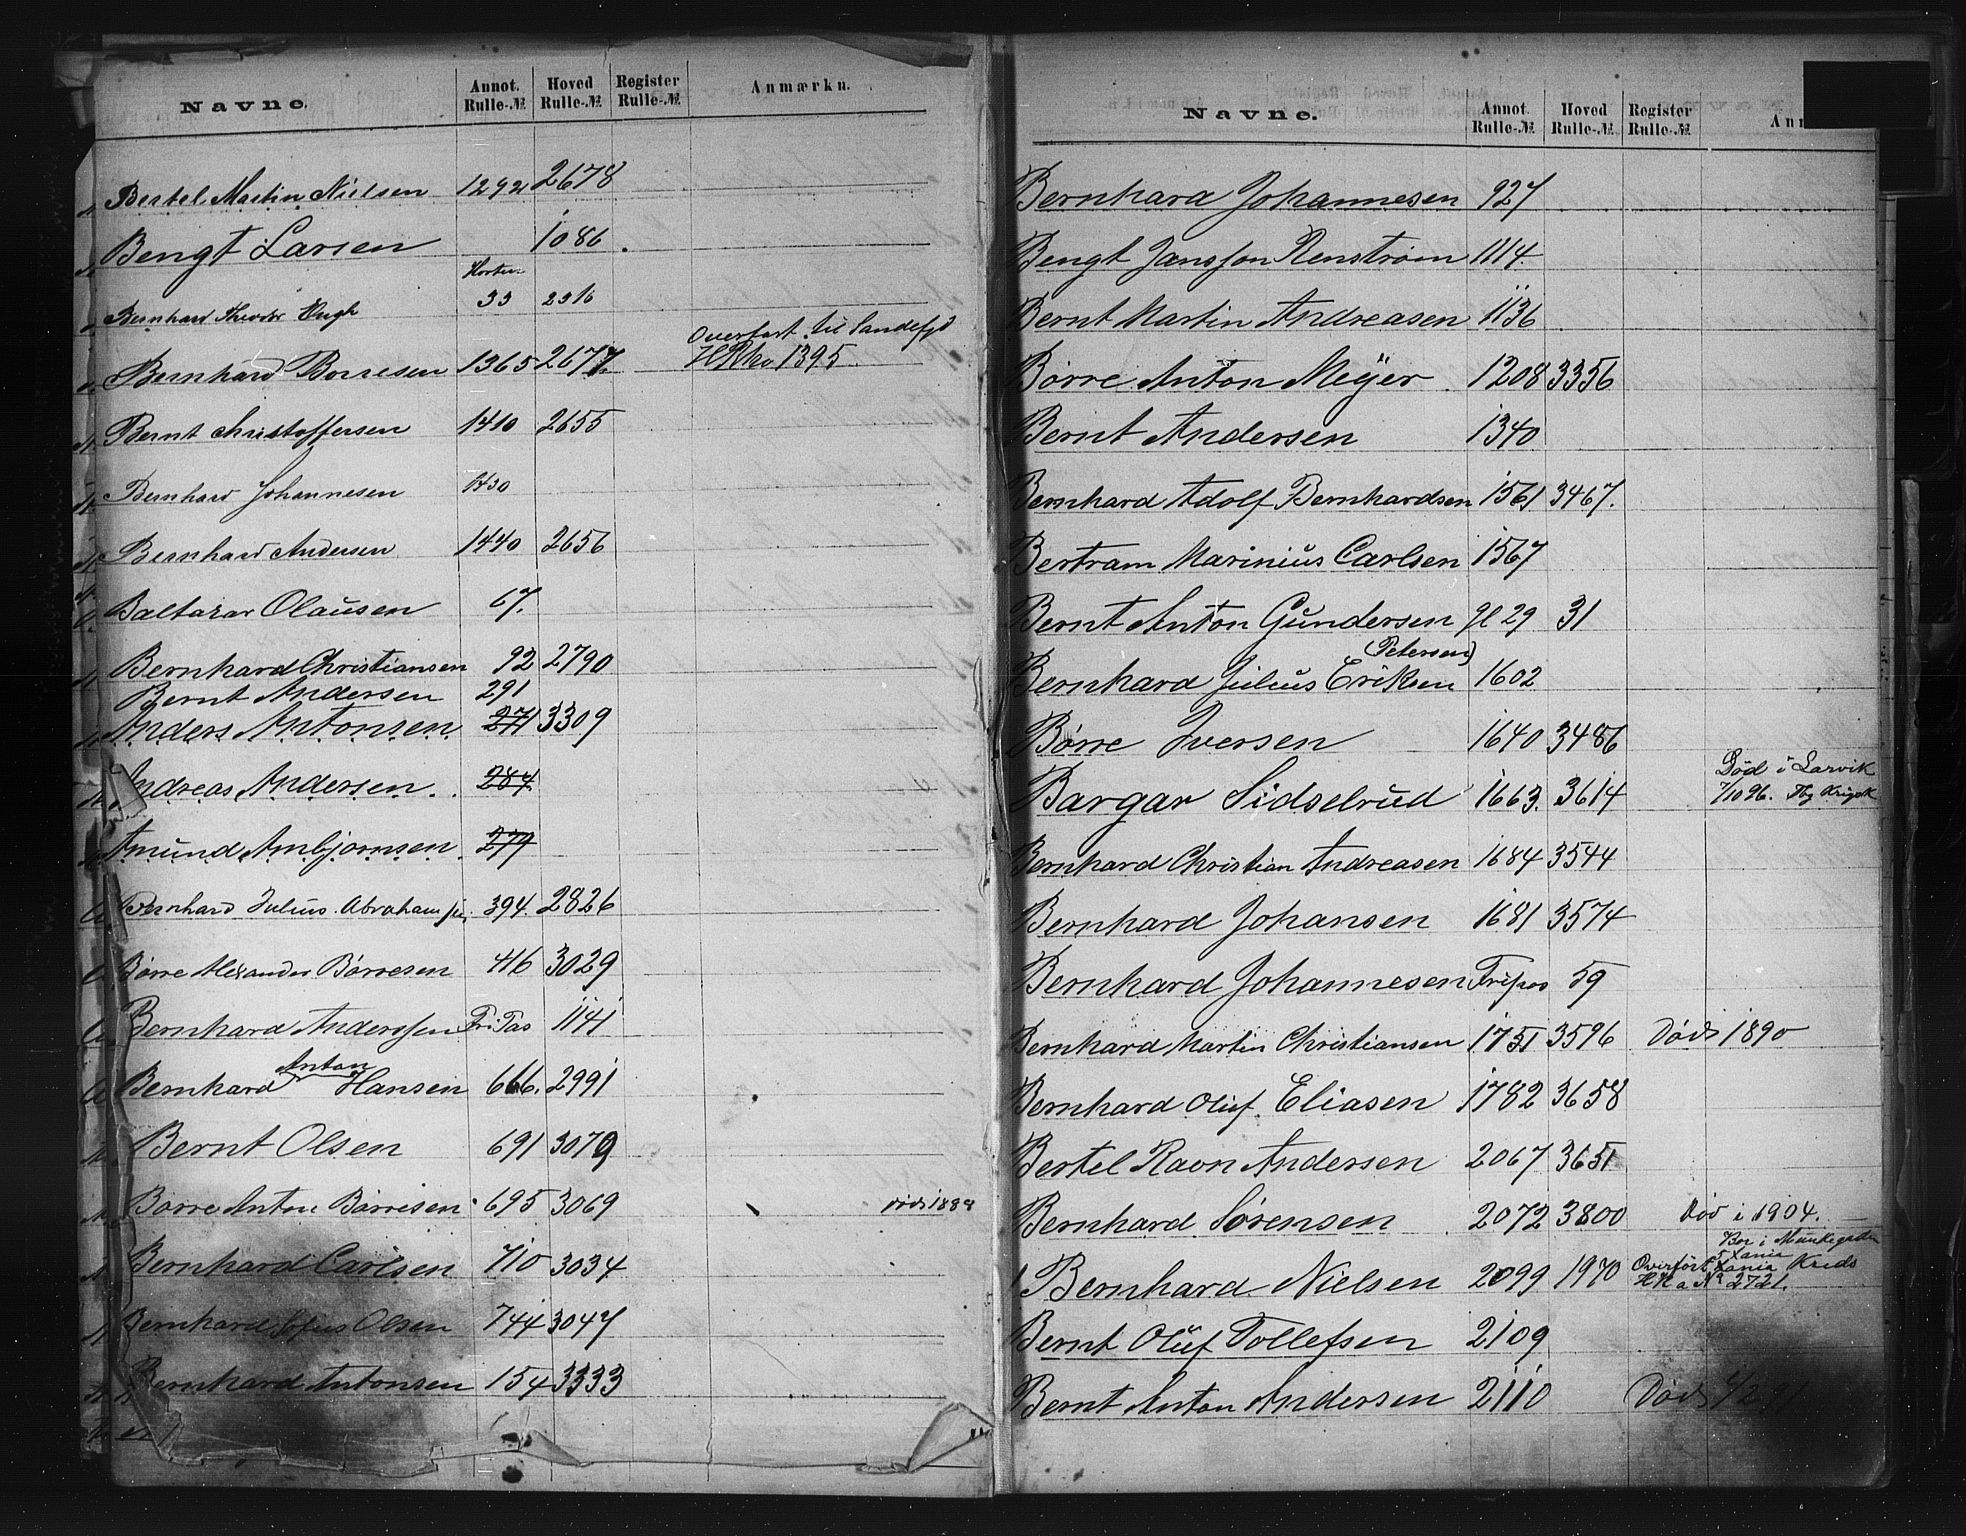 Navne. Annot. Rulle-№ Hoved Rulle-№ Register Rulle-№ Anmærkn.
Bertel Martin Nielsen 1292 2678
Bengt Larsen 1086
Horten
Bernhard Theodor Engh 33 2316
Overført til Sandefjd
Bernhard Borresen 1365 2677 HRno 1395.
Bernt Christoffersen 1410 2655
Bernhard Johannesen 1430
Bernhard Andersen 1440 2656
Baltazar Olausen 67.
Bernhard Christiansen 92 2790
Bernt Andersen 291
Anders Antonsen 271 3309
Andreas Andersen 284
Amund Ambjørnsen 279
Bernhard Julius Abrahamsen 394. 2826
Børre Alexander Børresen 416 3029
Bernhard Anderssen Fri Pas 1141
Anton
Bernhard Hansen 666. 2991
Bernt Olsen 691 3079
Borre Anton Børresen 695 3069 død 1888
Bernhard Carlsen 710 3034
Bernhard Olsen 744 3047
Bernhard Antonsen 154 3333
Navne. Annot. Rulle-№ Hoved Rulle-№ Register Rulle-№ An
Bernhard Johannesen 927
Bengt Jansson Renstrøm 1114.
Bernt Martin Andreasen 1136
Børre Anton Meÿer 1208 3356
Bernt Andersen 1340
Bernhard Adolf Bernhardsen 1561 3467.
Bertram Marinius Carlsen 1567
Bernt Anton Gundersen gl 29 31
(Petersen)
Bernhard Julius Eriksen 1602
Børre Iversen 1640 3486
Død i Larvik
Bargar Sidselrud 1663. 3614 7/10 96.
Bernhard Christian Andreasen 1684 3544
Bernhard Johansen 1681 3574
Bernhard Johannesen Fripas 59
Bernhard Martin Christiansen 1751 3596 Død 1890
Bernhard Oluf Eliasen 1782 3658
Bertel Ravn Andersen 2067 3651
Bernhard Sørensen 2072 3800 Død i 1904.
Bor i Munkegaden
Xania
Overført Xania Kreds
Bernhard Nielsen 2099 1970 HR a № 2721.
Bernt Oluf Tollefsen 2109
Bernt Anton Andersen 2110 Død